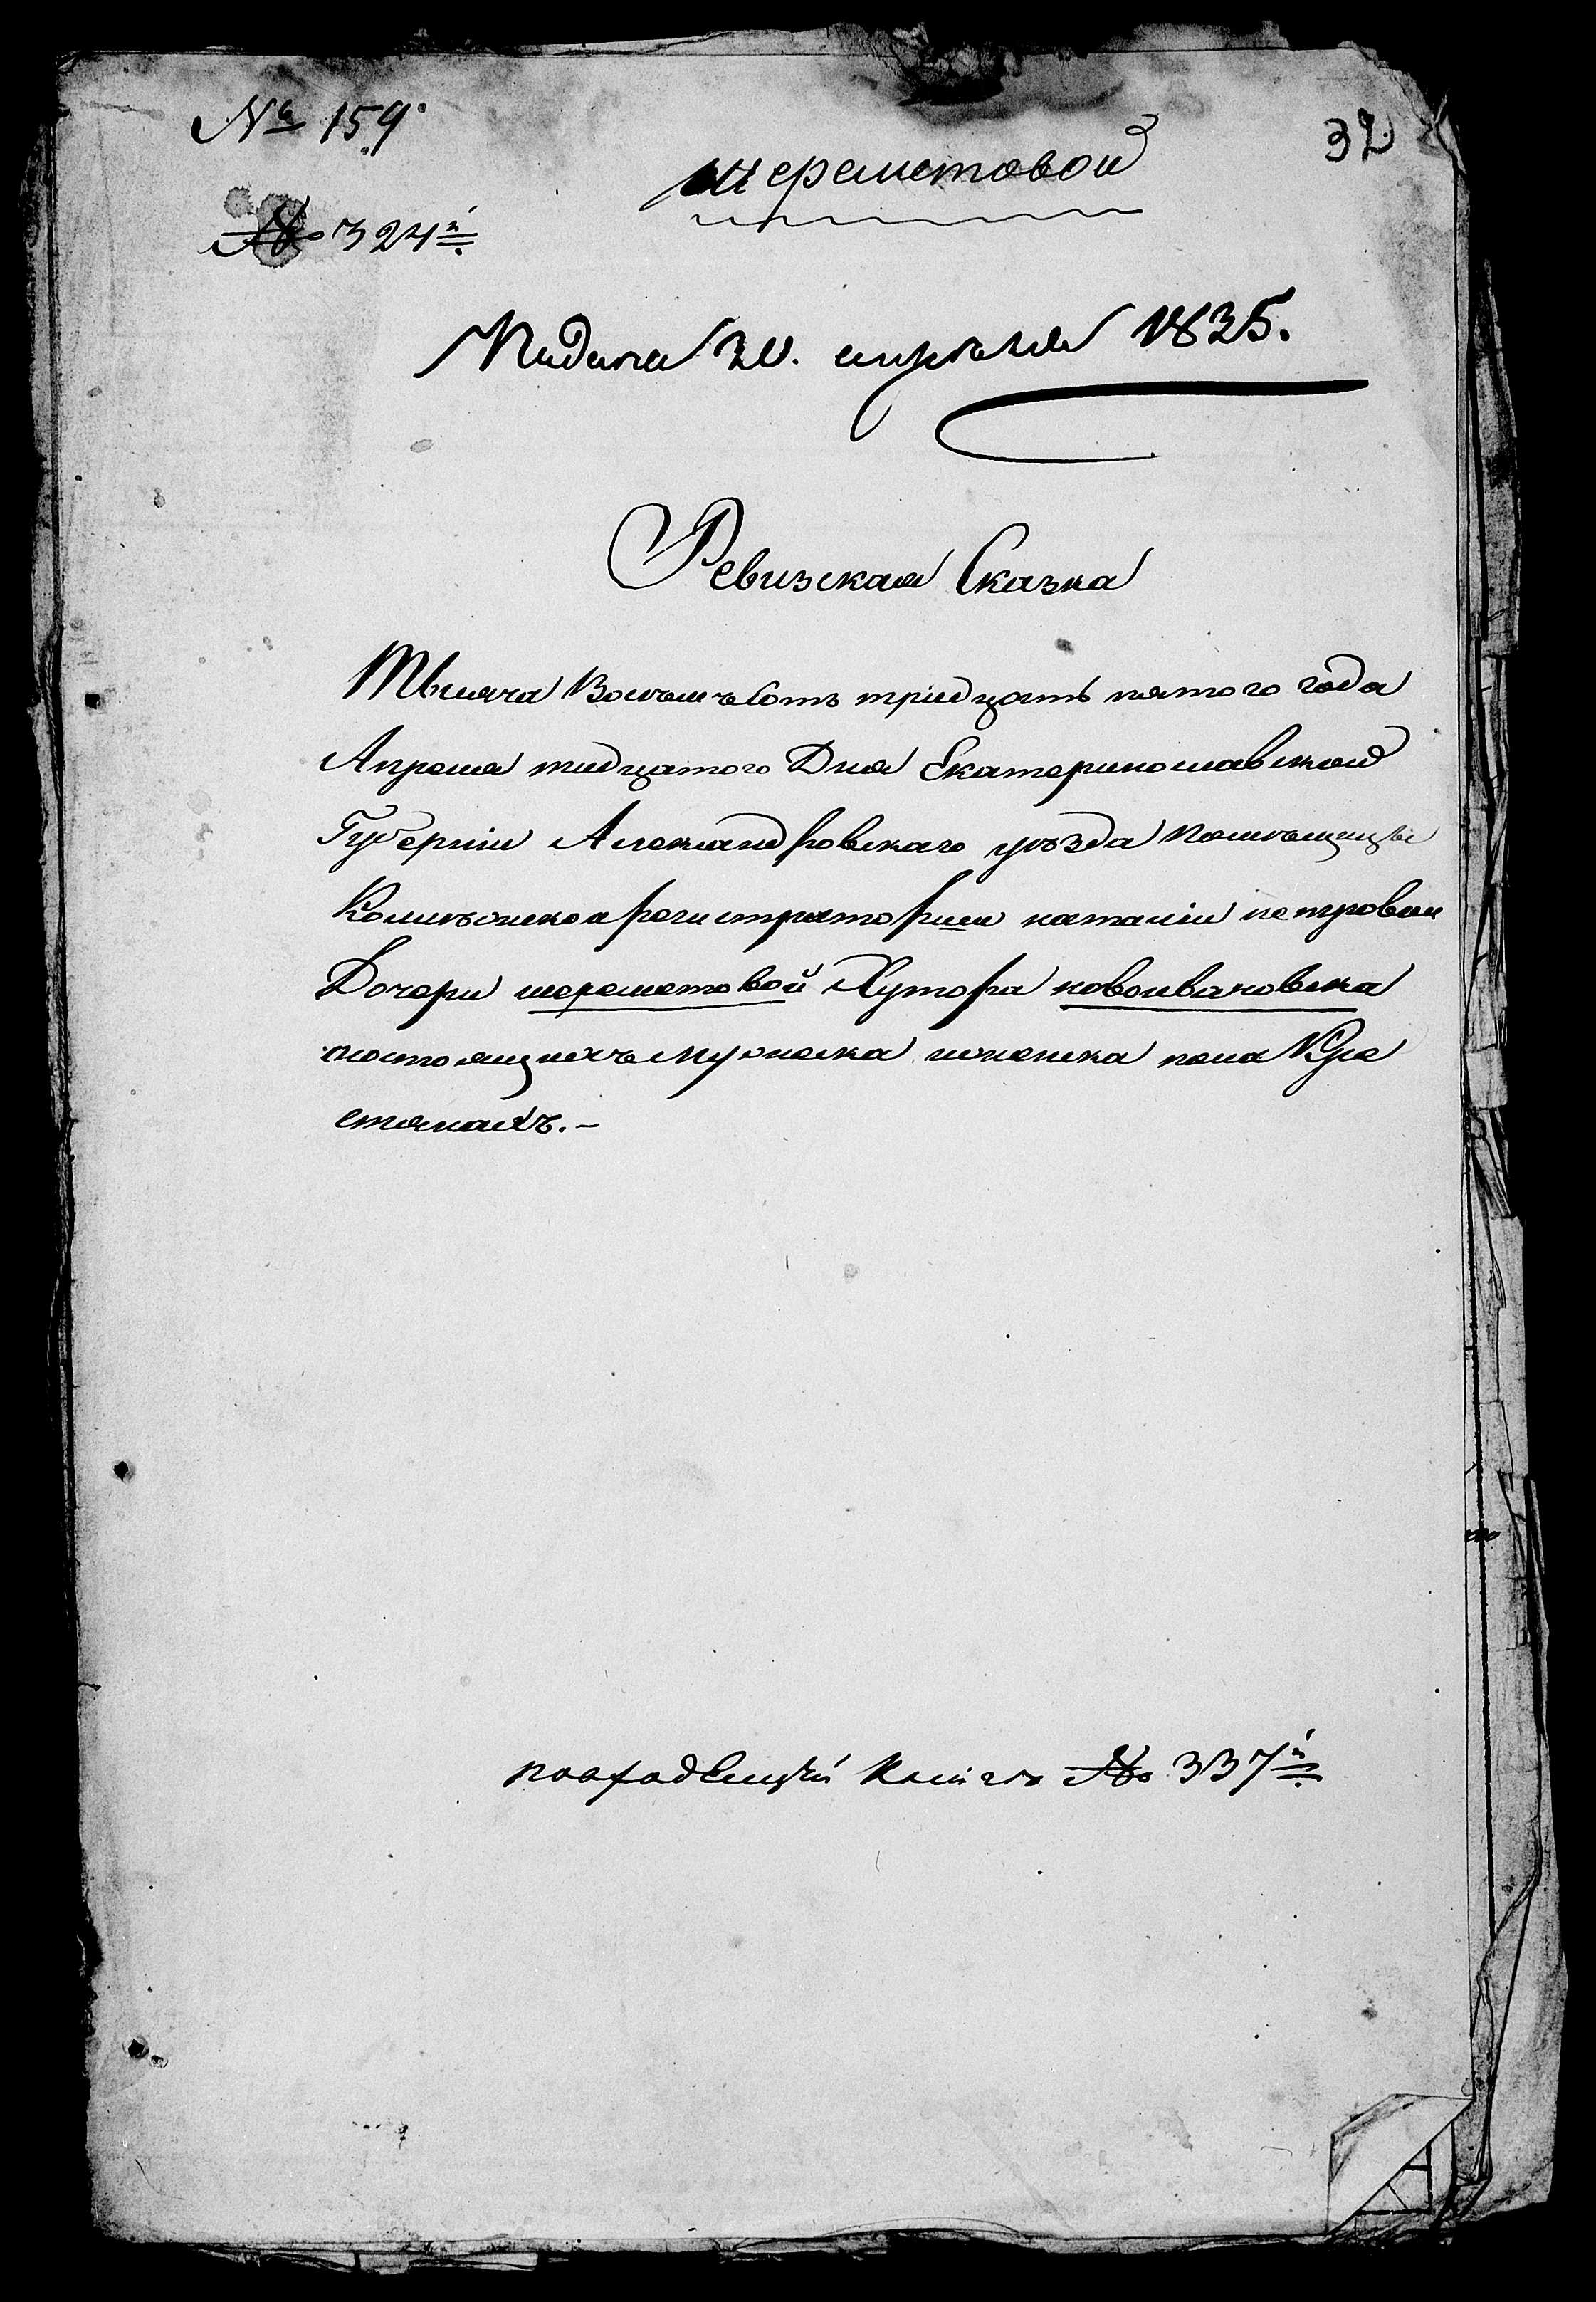 № 159.
32
шереметовой
№ 324й
Подана 30. апрѣля 1835.
Ревизская Сказка
Тысяча Восемъ Сотъ тридцать пятого года
Апреля тридцатого Дня Екатеринославской
Губерніи Александровскаго уѣзда помѣщицы
Колежской регистраторши наталіи петровой
Дочери шереметовой Хутора новоивановска
состоящихъ мужеска иженска пола Кре
стянахъ.-
поораздвицкй Книги № 337й